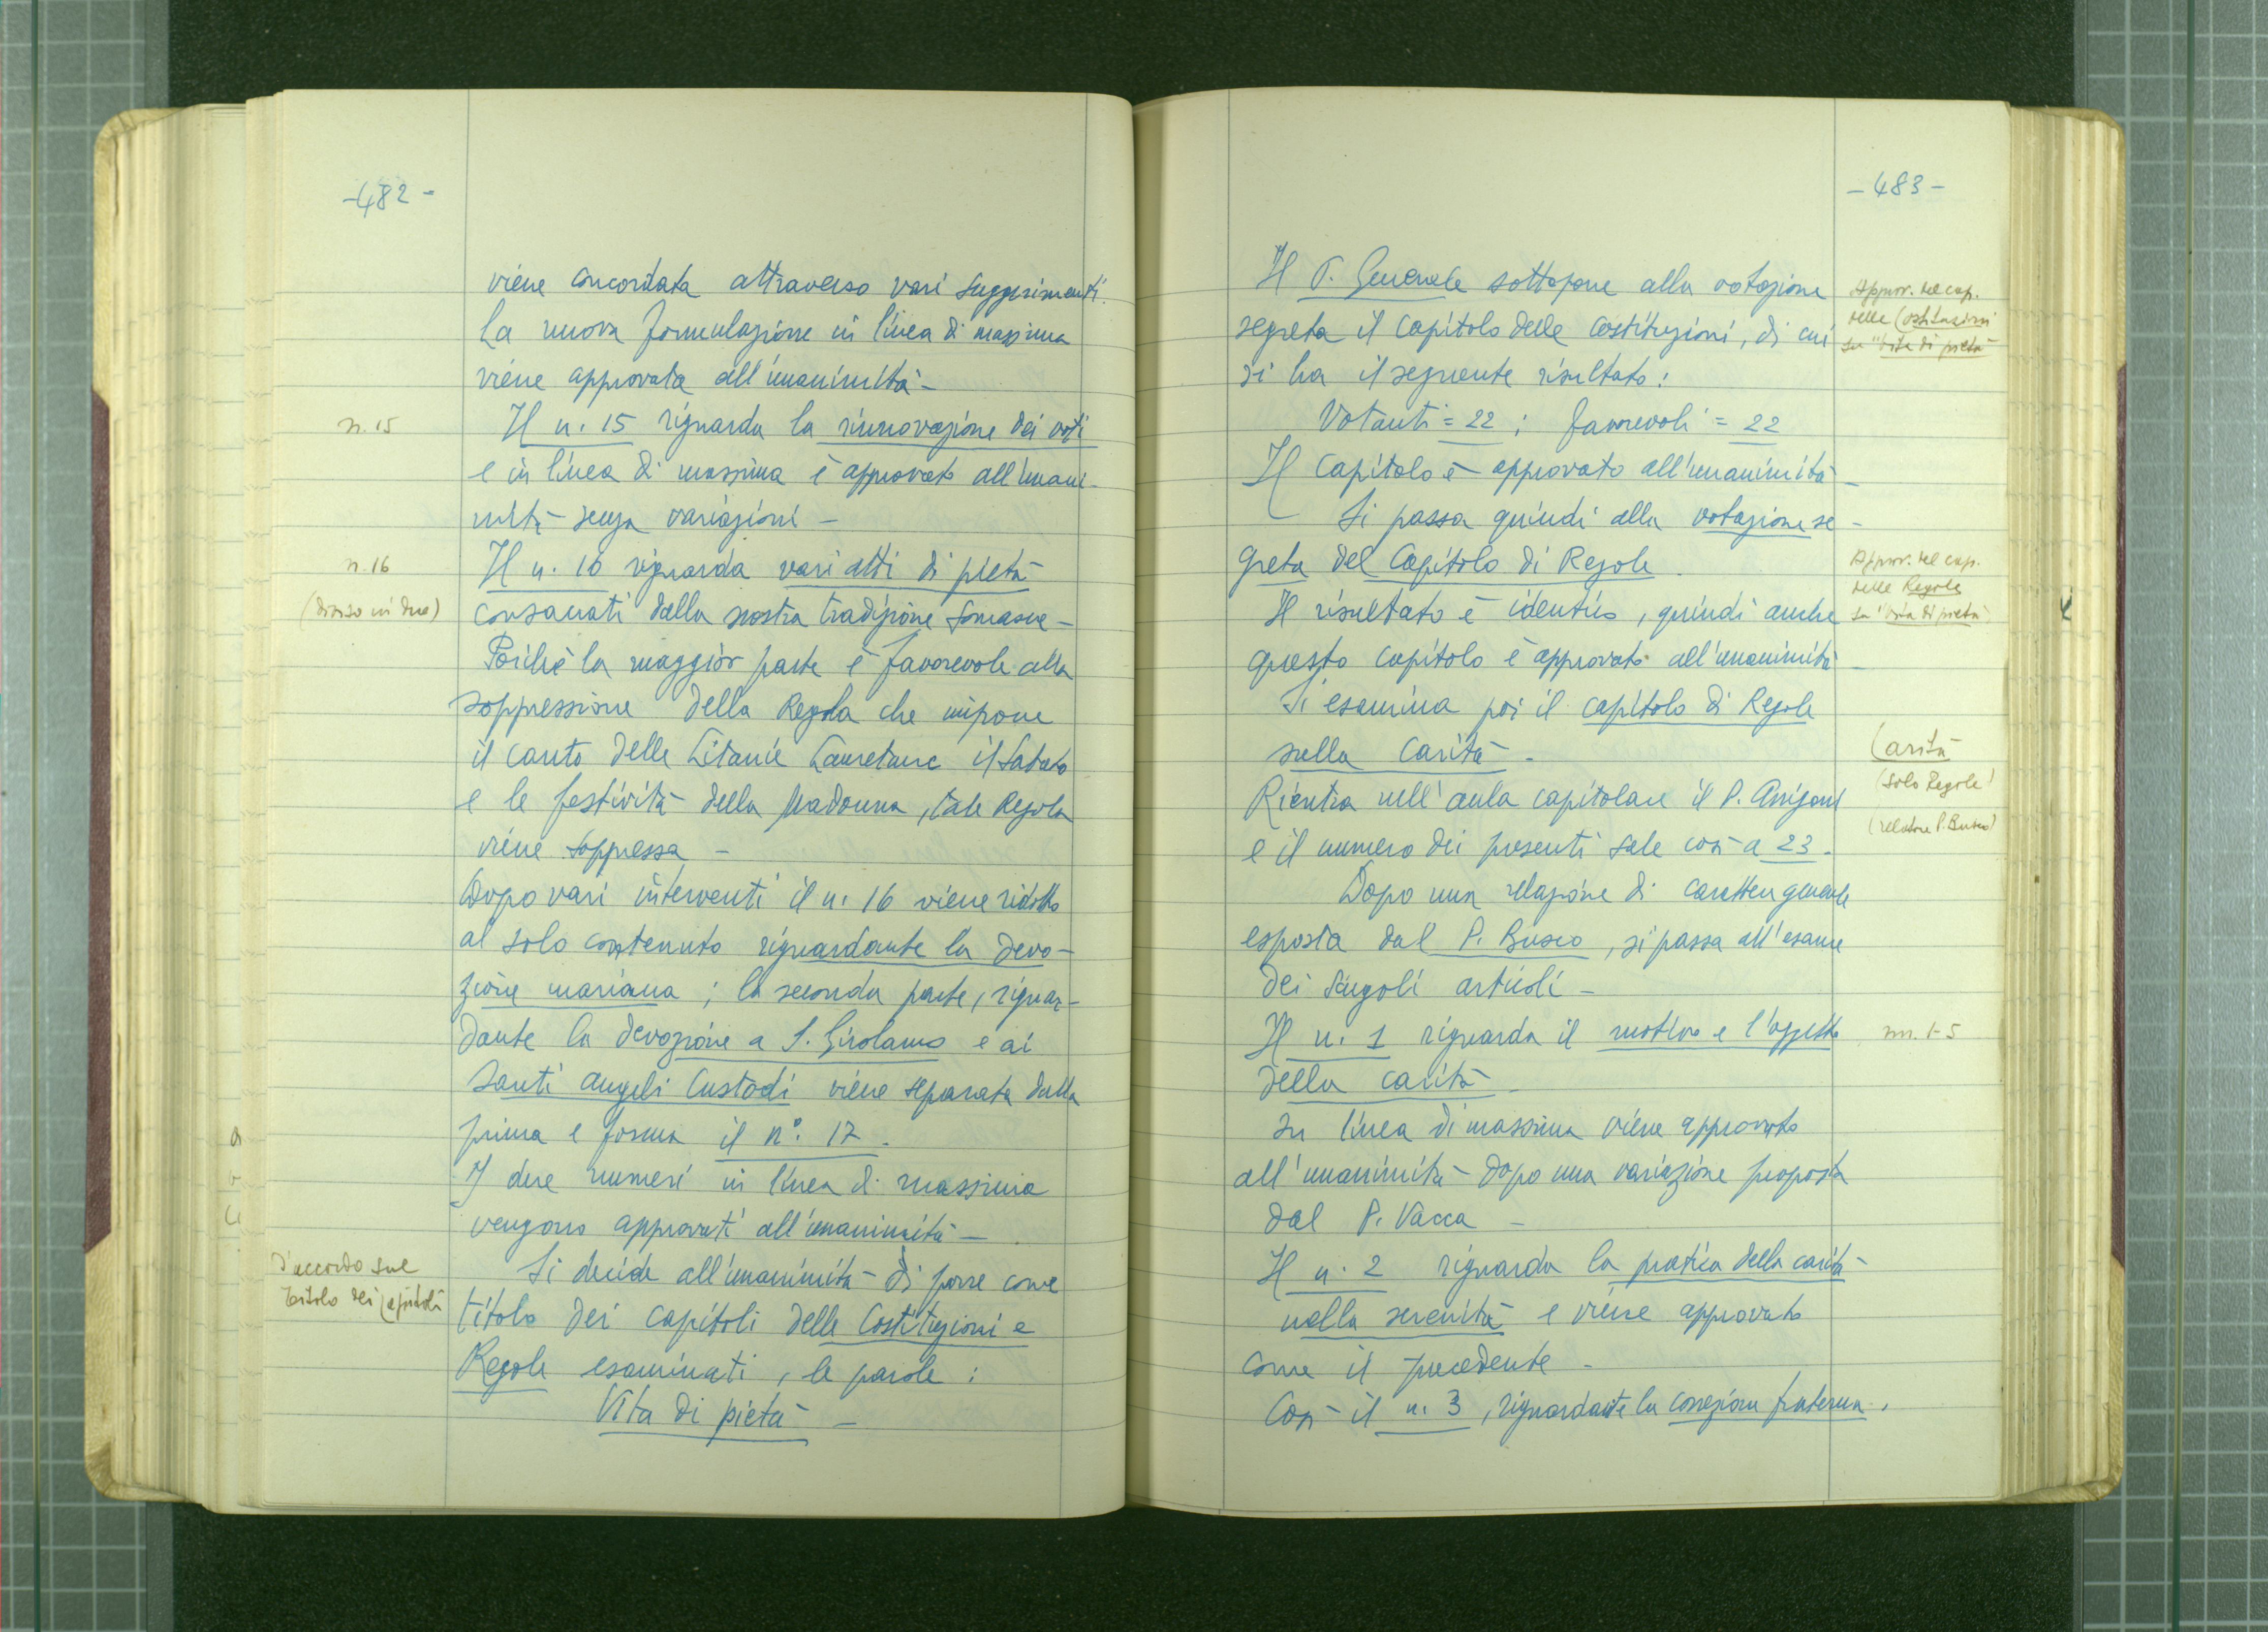 -482-
viene concordata attraverso vari suggerimenti.
La nuova formulazione in linea di massima
viene approvata all'unanimità-
n. 15
Il n. 15 riguarda la rinnovazione dei voti
e in linea di massima è approvato all'unani-
mità senza variazioni -
n. 16
(diviso in due)
Il n. 16 riguarda vari atti di pietà
consacrati dalla nostra tradizione somasca -
Poichè la maggior parte è favorevole alla
soppressione della Regola che impone
il canto delle Litanie Lauretane il Sabato
e le festività della Madonna, tale Regola
viene soppressa -
Dopo vari interventi il n. 16 viene ridotto
al solo contenuto riguardante la devo-
zione mariana; la seconda parte, riguar-
dante la devozione a S. Girolamo e ai
Santi Angeli Custodi viene separata dalla
prima e forma il n°. 17.
I due numeri in linea di massima
vengono approvati all'unanimità -
D'accordo sul
titolo dei Capitoli
Si decide all'unanimità di porre come
titolo dei capitoli delle Costituzioni e
Regole esaminati, le parole:
Vita di pietà -
-483-
Il P. Generale sottopone alla votazione
segreta il capitolo delle Costituzioni, di cui
si ha il seguente risultato:
Approv. del cap.
delle Costituzioni
su "Vita di pietà"
Votanti = 22; favorevoli = 22
Il capitolo è approvato all'unanimità -
Si passa quindi alla votazione se-
greta del Capitolo di Regole.
Approv. del cap.
delle Regole
su "Vita di pietà"
Il risultato è identico, quindi anche
questo capitolo è approvato all'unanimità -
Si esamina poi il capitolo di Regole
sulla carità -
Carità
(solo Regole)
(relatore P. Busco)
Rientra nell'aula capitolare il P. Arrigoni
e il numero dei presenti sale così a 23.
Dopo una relazione di carattere generale
esposta dal P. Busco, si passa all'esame
dei singoli articoli -
Il n. 1 riguarda il motivo e l'oggetto
nn. 1-5
della carità -
In linea di massima viene approvato
all'unanimità dopo una variazione proposta
dal P. Vacca -
Il n. 2 riguarda la pratica della carità
nella serenità e viene approvato
come il precedente -
Così il n. 3, riguardante la correzione fraterna.